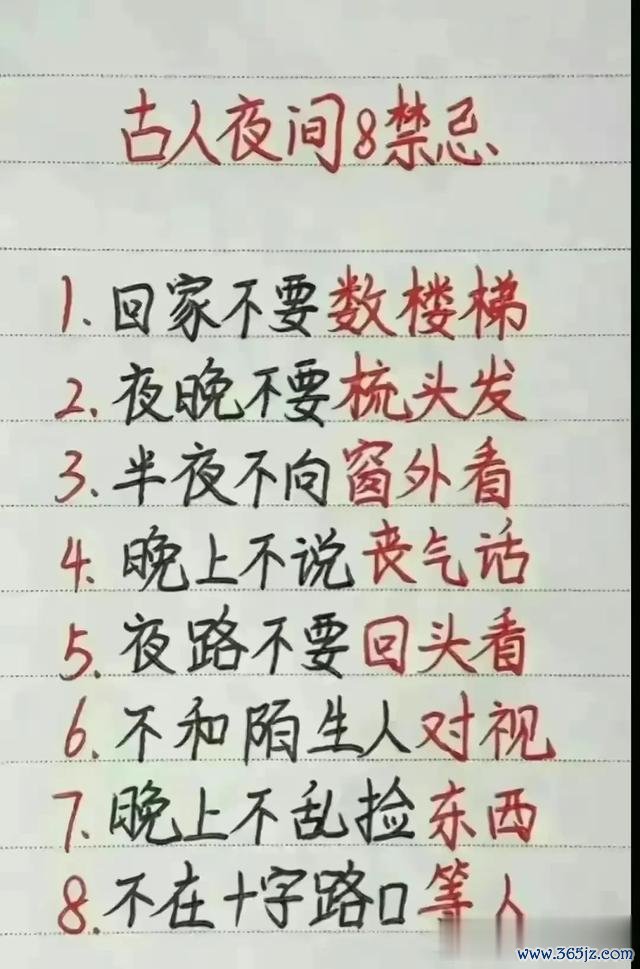 古人夜间8禁忌、
1. 回家不要数楼梯
2. 夜晚不要梳头发
3. 半夜不向窗外看
4. 晚上不说丧气话
5. 夜路不要回头看
6. 不和陌生人对视
7. 晚上不乱捡东西
8. 不在十字路口等人
www.365jz.com